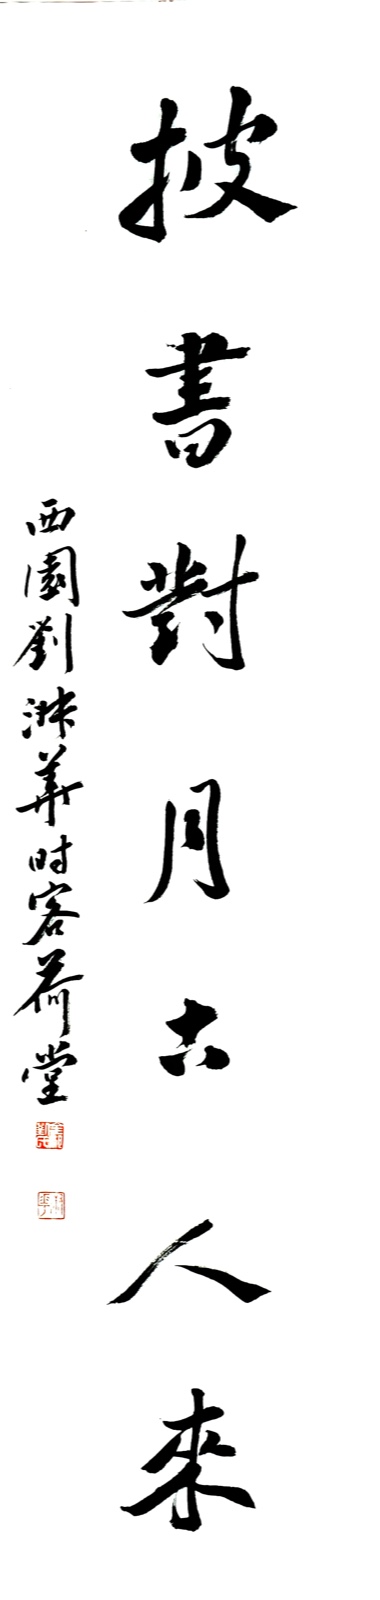 披書對月古人來
西園劉淋華时客荷堂